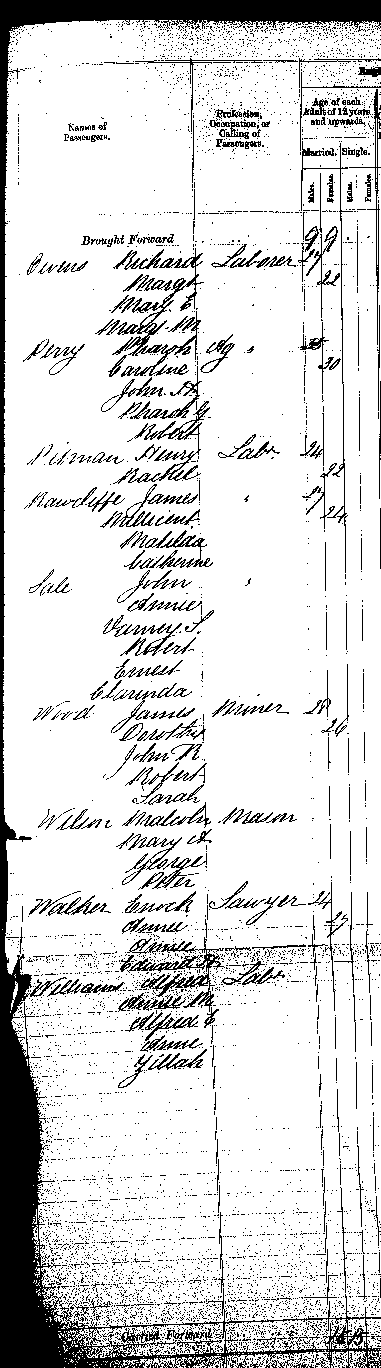 Engl
Names of Passengers.
Profession, Occupation, or Calling of Passengers.
Age of each Adult of 12 years and upwards.
Married. Single.
Males. Females. Males. Females.
Brought Forward 9 9
Owens Richard Laborer 27
Margt 22
Mary E
Mary M
Perry Pharoh Ag "
Caroline 30
John H.
Pharoh G
Robert
Pitman Henry Labr 24
Rachel 22
Rawcliffe James " 27
Millicent 24
Matilda
Catherine
Sale John "
Annie
Varney S.
Robert
Ernest
Clarinda
Wood James Miner 28
Dorothy 26
John R
Robert
Sarah
Wilson Malcolm Mason
Mary A
George
Peter
Walker Enoch Sawyer 24
Annie 27
Annie
Edward H.
Williams Alfred Labr
Annie M
Alfred E
Annie
Zillah
Carried Forward